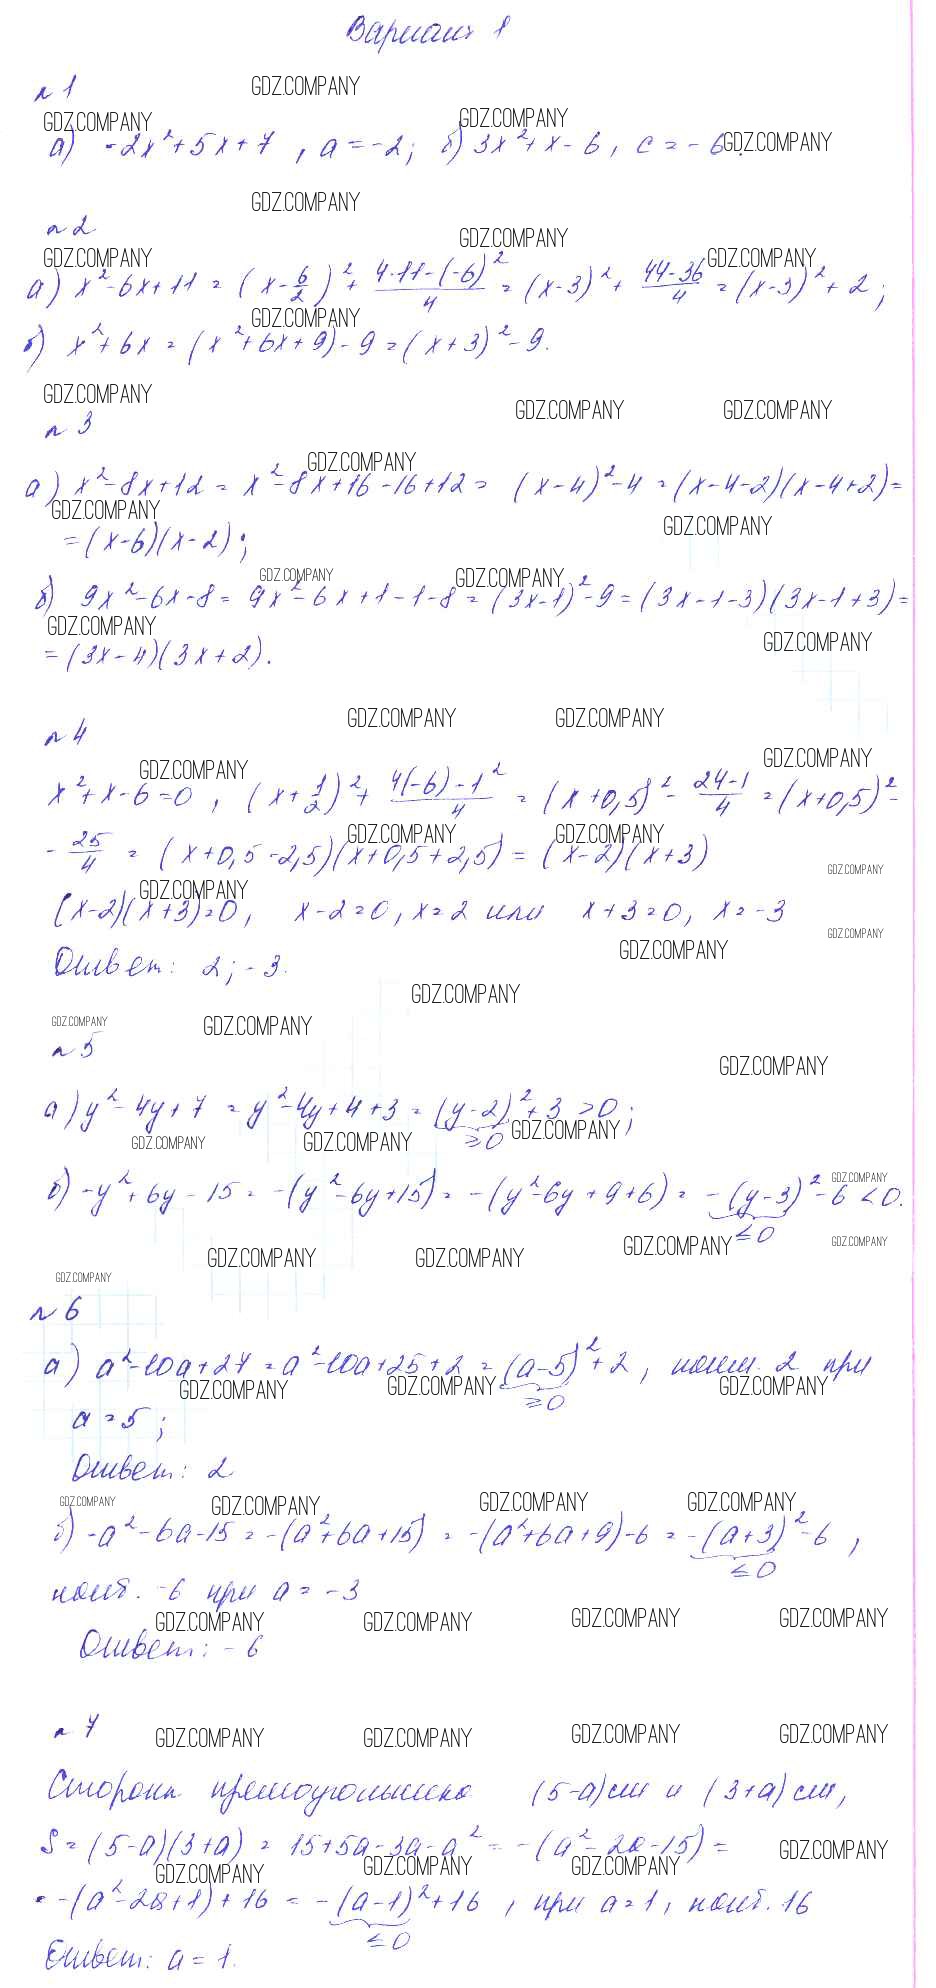 Вариант 1
n 1
а) -2x²+5x+7, a=-2; б) 3x²+x-6, c=-6.
n 2
а) x²-6x+11 = (x-6/2)²+(4·11-(-6)²)/4 = (x-3)²+(44-36)/4 = (x-3)²+2;
б) x²+6x = (x²+6x+9)-9 = (x+3)²-9.
n 3
а) x²-8x+12 = x²-8x+16-16+12 = (x-4)²-4 = (x-4-2)(x-4+2) =
= (x-6)(x-2);
б) 9x²-6x-8 = 9x²-6x+1-1-8 = (3x-1)²-9 = (3x-1-3)(3x-1+3) =
= (3x-4)(3x+2).
n 4
x²+x-6=0, (x+1/2)²+(4(-6)-1²)/4 = (x+0,5)²-(24-1)/4 = (x+0,5)²-
-25/4 = (x+0,5-2,5)(x+0,5+2,5) = (x-2)(x+3)
(x-2)(x+3)=0, x-2=0, x=2 или x+3=0, x=-3
Ответ: 2; -3.
n 5
а) y²-4y+7 = y²-4y+4+3 = (y-2)²+3 >0;
≥0
б) -y²+6y-15 = -(y²-6y+15) = -(y²-6y+9+6) = -(y-3)²-6 <0.
≤0
n 6
а) a²-10a+27 = a²-10a+25+2 = (a-5)²+2, наим. 2 при
≥0
a=5;
Ответ: 2
б) -a²-6a-15 = -(a²+6a+15) = -(a²+6a+9)-6 = -(a+3)²-6,
≤0
наиб. -6 при a=-3
Ответ: -6
n 7
Стороны прямоугольника (5-a)см и (3+a)см,
S=(5-a)(3+a) = 15+5a-3a-a² = -(a²-2a-15) =
= -(a²-2a+1)+16 = -(a-1)²+16, при a=1, наиб. 16
≤0
Ответ: a=1.
GDZ.COMPANY